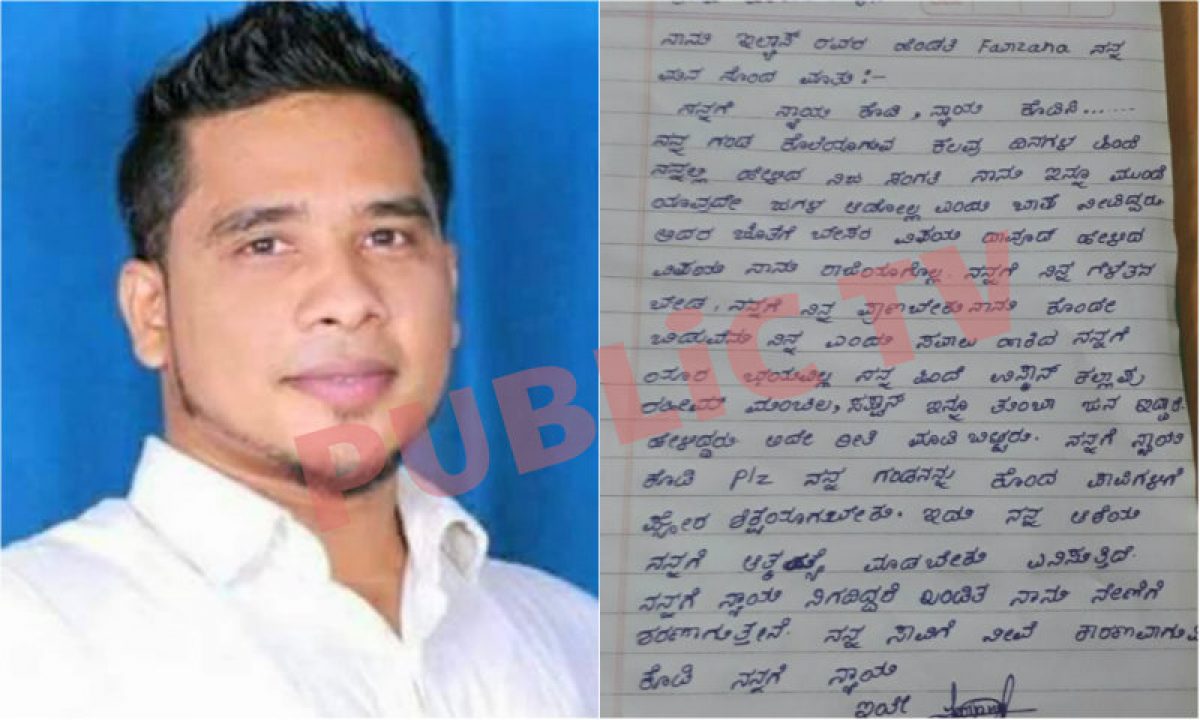 ನಾನು ಇಲ್ಯಾಸ್ ರವರ ಹೆಂಡತಿ Farzana ನನ್ನ
ಮನ ನೊಂದ ಮಾತು :-
ನನ್ನಗೆ ನ್ಯಾಯ ಕೊಡಿ , ನ್ಯಾಯ ಕೊಡಿಸಿ......
ನನ್ನ ಗಂಡ ಕೊಲೆಯಾಗುವ ಕೆಲವು ದಿನಗಳ ಹಿಂದೆ
ನನ್ನಲ್ಲಿ ಹೇಳಿದ ನಿಜ ಸಂಗತಿ ನಾನು ಇನ್ನೂ ಮುಂದೆ
ಯಾವುದೇ ಜಗಳ ಆಡೋಲ್ಲ ಎಂದು ಭಾಷೆ ನೀಡಿದ್ದರು
ಅದರ ಜೊತೆಗೆ ಬೇಸರ ವಿಷಯ ದಾವೂದ್ ಹೇಳಿದ
ವಿಷಯ ನಾನು ರಾಜಿಯಾಗೊಲ್ಲ. ನನ್ನಗೆ ನಿನ್ನ ಗೆಳೆತನ
ಬೇಡ , ನನ್ನಗೆ ನಿನ್ನ ಪ್ರಾಣಬೇಕು ನಾನು ಕೊಂದೇ
ಬಿಡುವೆನು ನಿನ್ನ ಎಂದು ಸವಾಲು ಹಾಕಿದ ನನ್ನಗೆ
ಯಾರ ಭಯವಿಲ್ಲ ನನ್ನ ಹಿಂದೆ ಕಲ್ಲಾಪು
ಇನ್ನೂ ತುಂಬಾ ಜನ ಇದ್ದಾರೆ.
ಹೇಳಿದ್ದರು ಅದೇ ರೀತಿ ಮಾಡಿ ಬಿಟ್ಟರು. ನನ್ನಗೆ ನ್ಯಾಯ
ಕೊಡಿ Plz ನನ್ನ ಗಂಡನನ್ನು ಕೊಂದ ಪಾಪಿಗಳಿಗೆ
ಘೋರ ಶಿಕ್ಷೆಯಾಗಬೇಕು. ಇದು ನನ್ನ ಆಶೆಯ
ನನ್ನಗೆ ಮಾಡಬೇಕು ಎನಿಸುತ್ತಿದೆ.
ನನ್ನಗೆ ನ್ಯಾಯ ಸಿಗದಿದ್ದರೆ ಖಂಡಿತ ನಾನು ನೇಣಿಗೆ
ಶರಣಾಗುತ್ತೇನೆ. ನನ್ನ ಸಾವಿಗೆ ನೀವೆ
ಕೊಡಿ ನನ್ನಗೆ ನ್ಯಾಯ
ಇದೇ
PUBLiC TV